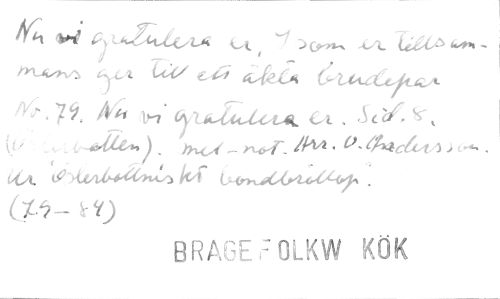 Nu vi gratulera er, I som er tillsam-
mans ger till ett äkta brudepar
No. 79. Nu vi gratulera er. Sid. 8.
(Österbotten). mel-not. Arr. O. Andersson.
Ur "Österbottniskt bondbröllop".
(79-84)
BRAGE FOLKW KÖK